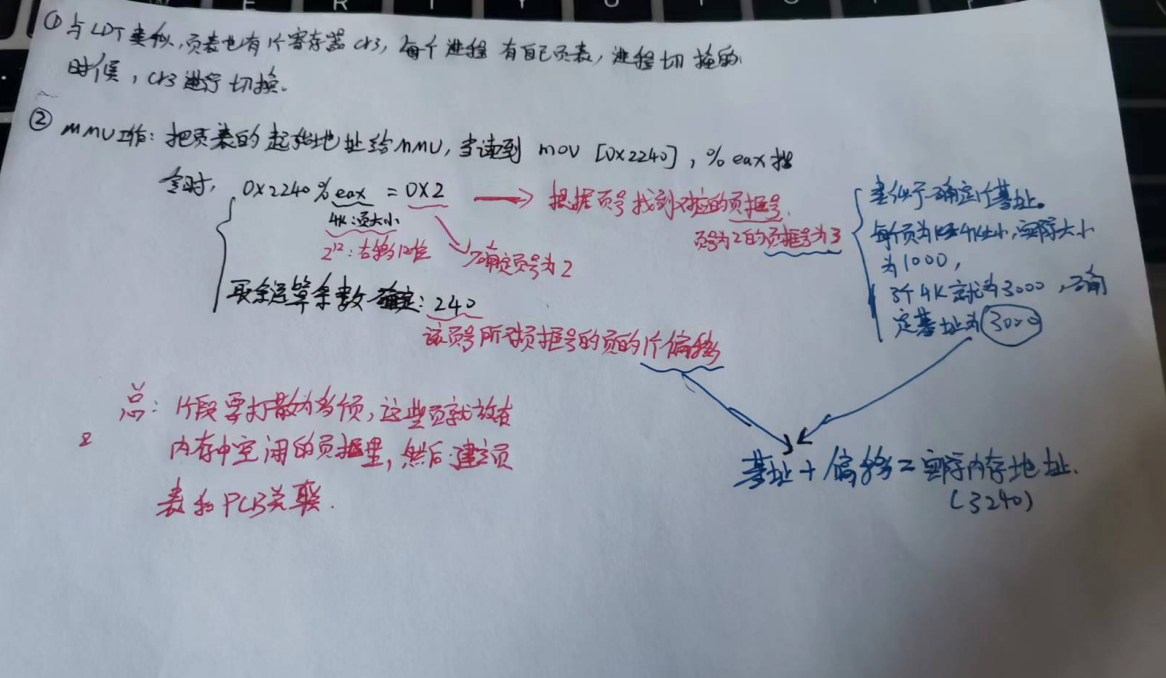 ① 与LDT类似,页表也有个寄存器cr3,每个进程有自己页表,进程切换的
时候,cr3进行切换。
② MMU工作:把页表的起始地址给MMU,当读到 mov [0x2240], %eax 指
令时,
0x2240 % eax = 0x2
4K:页大小
2¹²:右移12位
确定页号为2
根据页号找到对应的页框号.
页号为2的页框号为3
取余运算余数确定:240
该页号所对页框号的页的个偏移
类似于确定个基址。
每个页为4K大小,实际大小
为1000,
3个4K就为3000,确
定基址为3000
基址+偏移=实际内存地址.
(3240)
总:个段要打散为多个页,这些页就放在
内存中空闲的页框里,然后建立页
表和PCB关联.